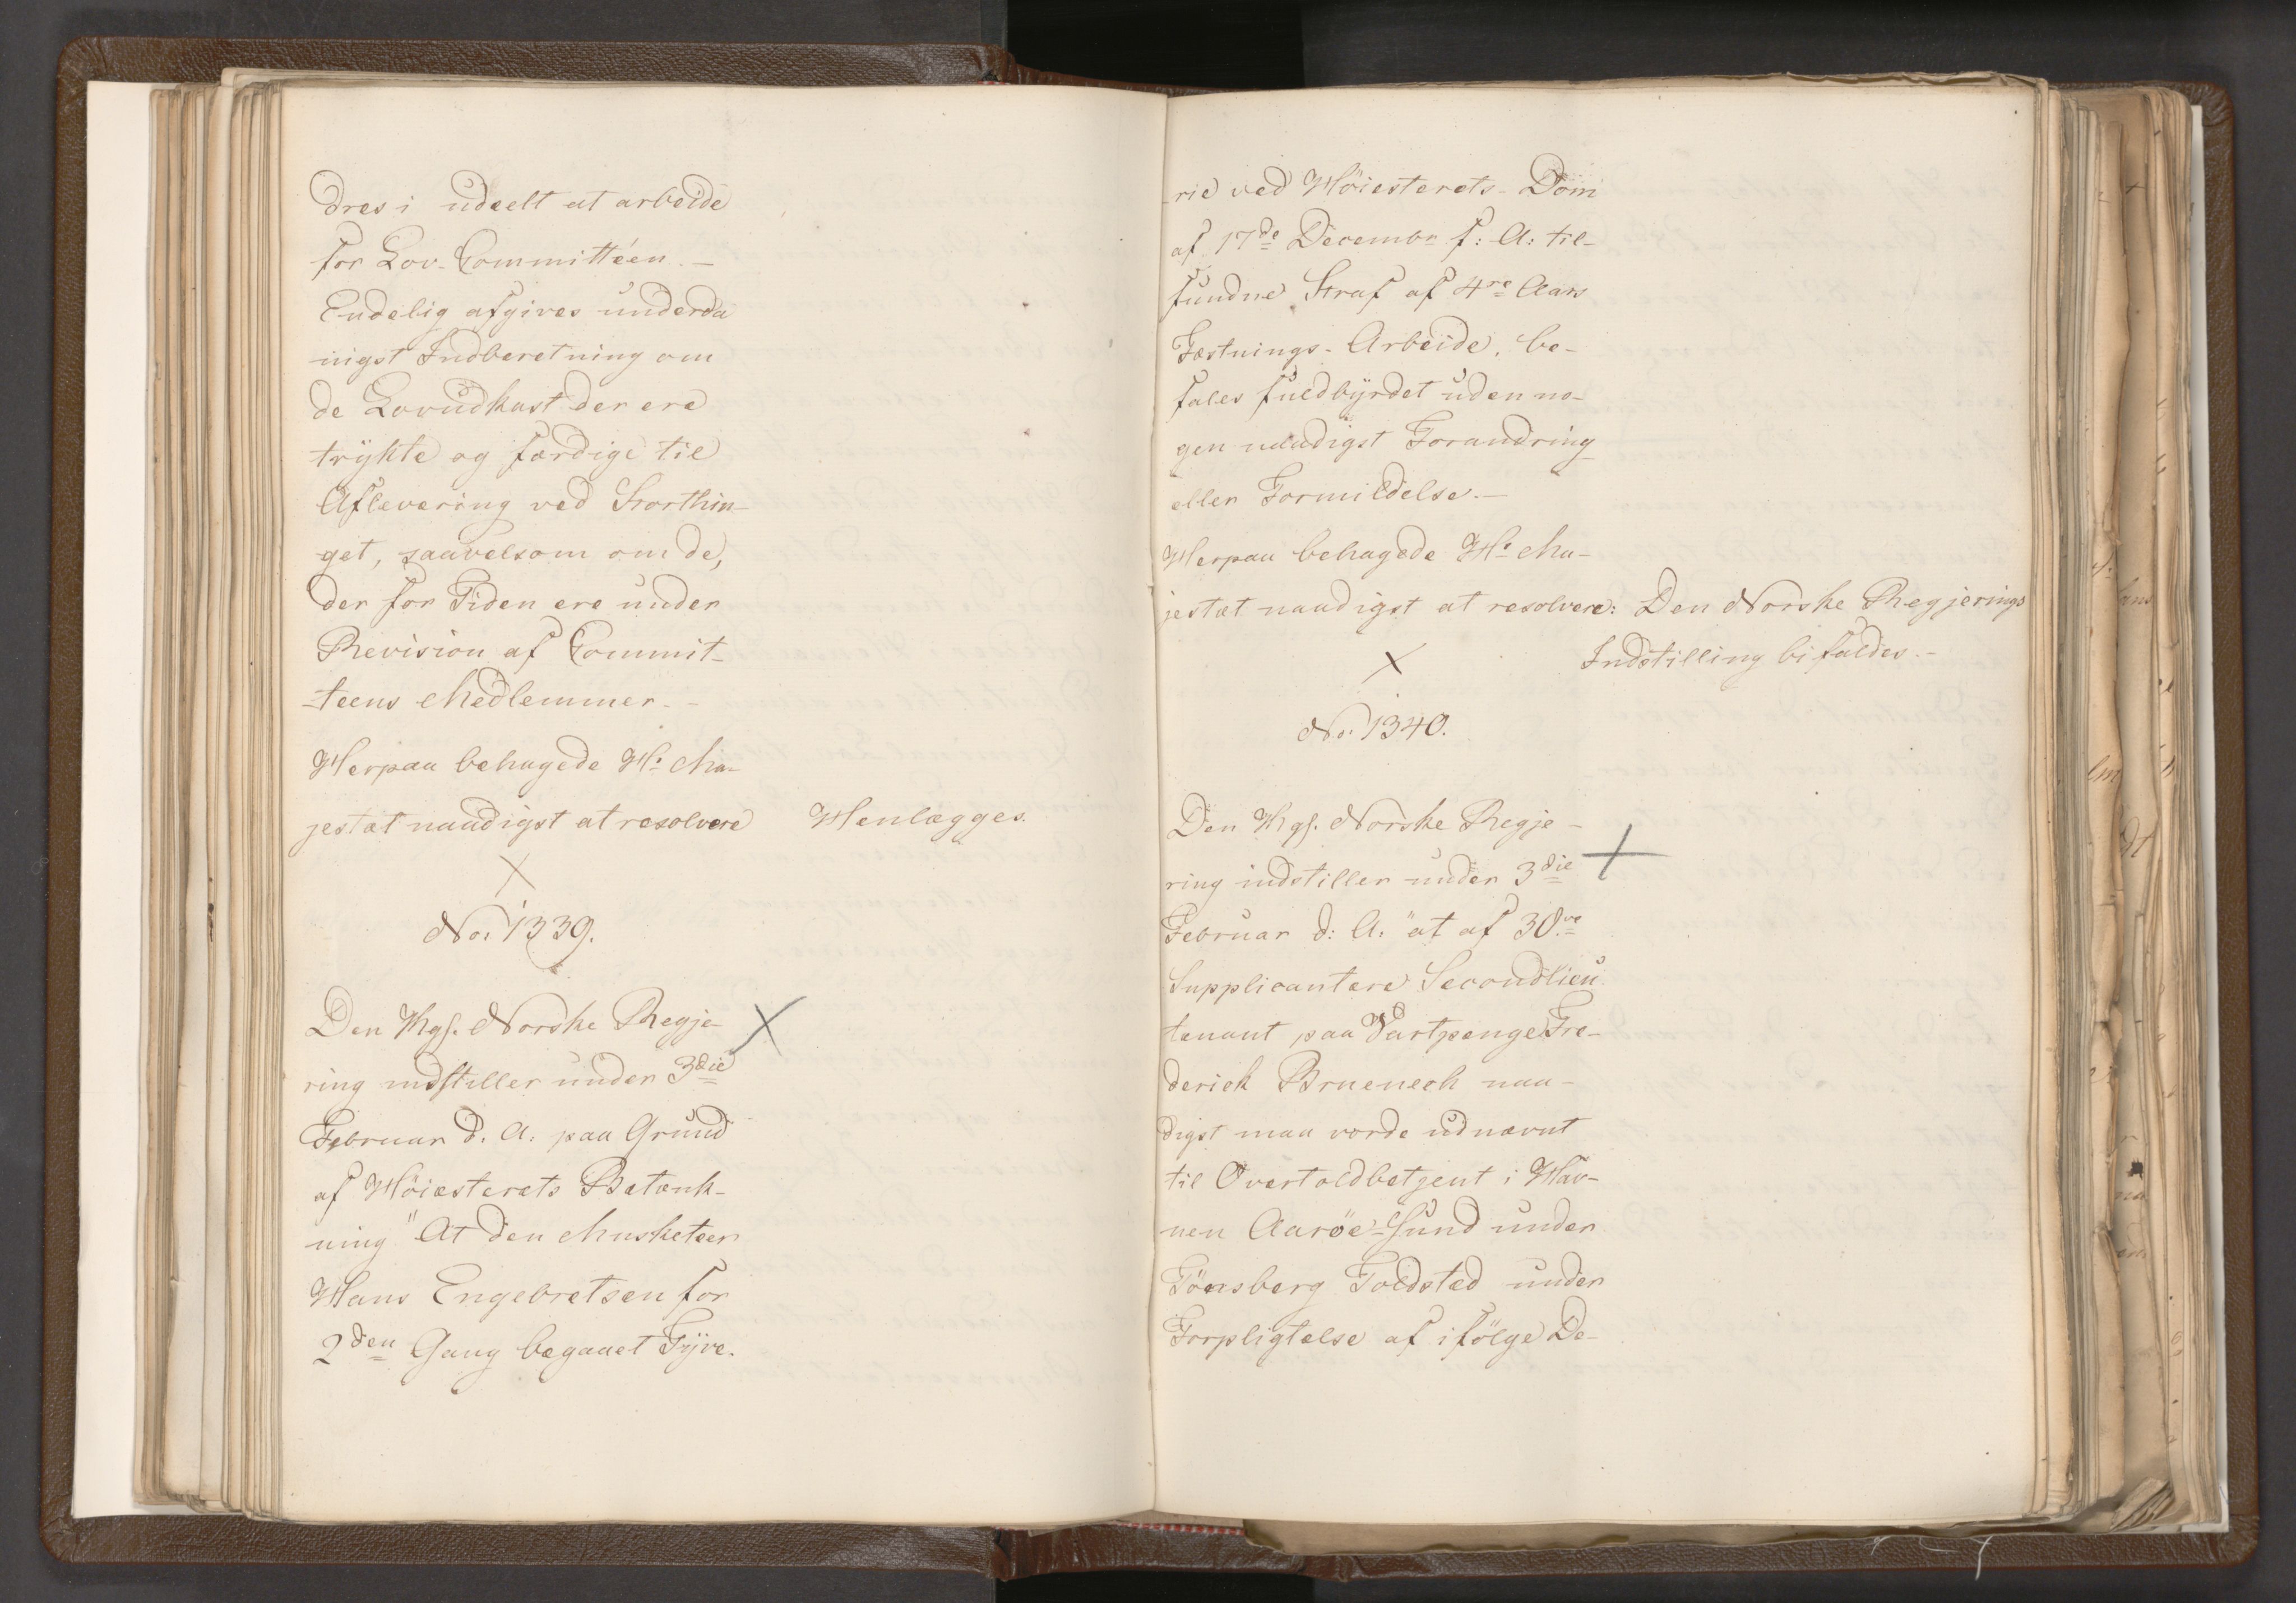 dres i udeelt at arbeide
for Lov-Committéen. —
Endelig afgives underda
nigst Indberetning om
de Lovudkast der ere
trÿkte og færdige til
Aflevering ved Storthin-
get, saavelsom om de,
der for Tiden ere under
Revision af Commit-
teens Medlemmer. -
Herpaa behagede H: Ma-
jestæt naadigst at resolvere Henlægges.
No: 1339.
Den Kgl. Norske Regje-
ring indstiller under 3die
Februar d. A: paa Grund
af Höiesterets Betænk-
ning "At den Musketeer
Hans Engebretsen for
2den Gang begaaet Tÿve-
rie ved Höiesterets-Dom
af 17de Decembr f: A: til-
fundne Straf af 4re Aars
Fæstnings-Arbeide, be-
fales fuldbÿrdet uden no-
gen naadigst Forandring
eller Formildelse. —
Herpaa behagede H: Ma-
jestæt naadigst at resolvere: Den Norske Regjerings
Indstilling bifaldes. -
No: 1340.
Den Kgl. Norske Regje-
ring indstiller under 3die
Februar d: A: "at af 30ve
Supplicantere Secondlieu
tenant paa Vartpenge Fre-
derick Bruenech naa-
digst maa vorde udnævnt
til Overtoldbetjent i Hav-
nen Aaröe-Sund under
Tönsberg Toldsted under
Forpligtelse af ifölge De-